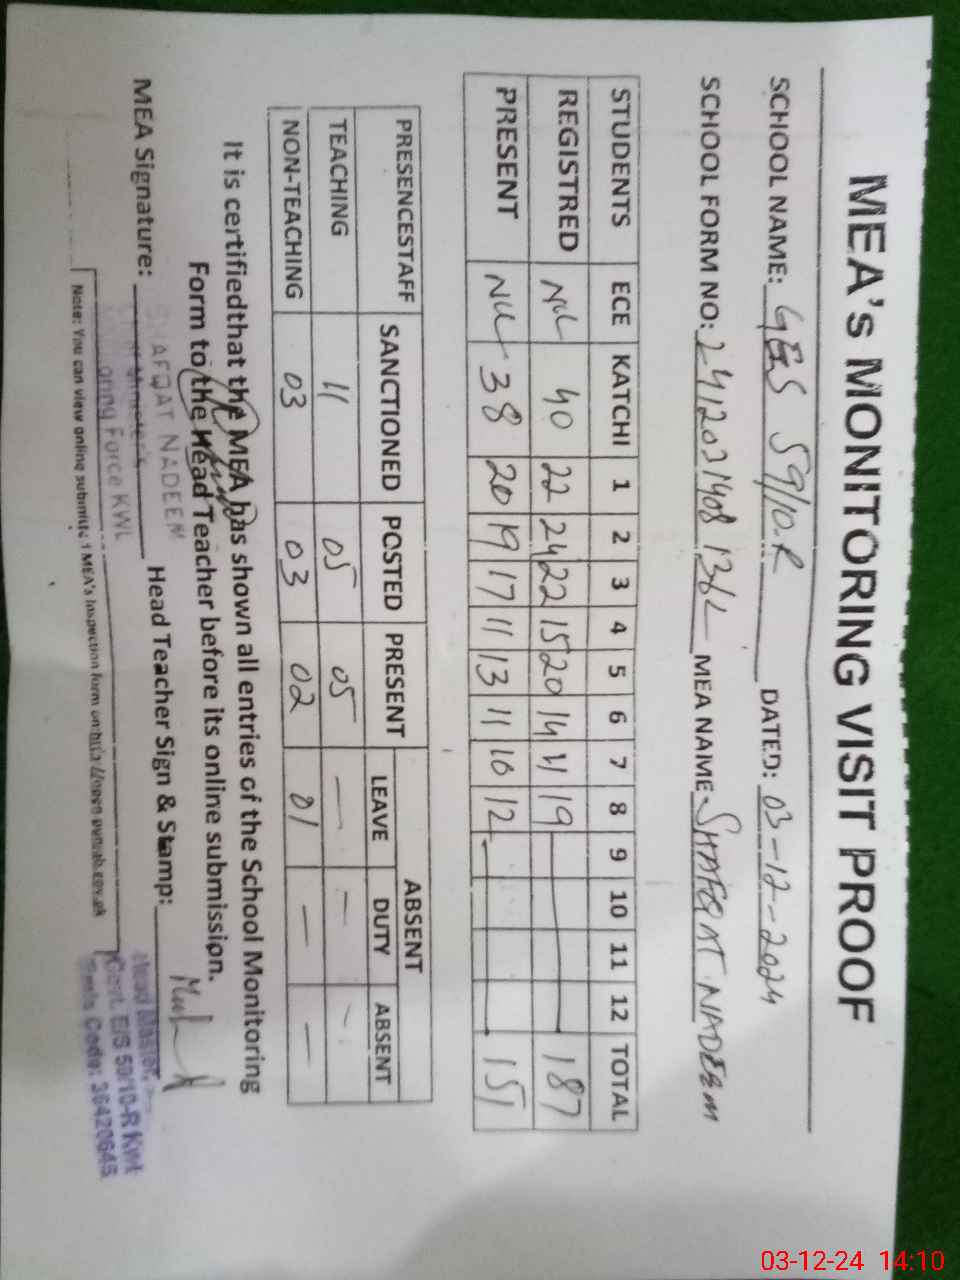 MEA's MONITORING VISIT PROOF
SCHOOL NAME: GES 59/10.R DATED: 03-12-2024
SCHOOL FORM NO: MEA NAME SHAFQAT NADEEM
STUDENTS ECE KATCHI 1 2 3 4 5 6 7 8 9 10 11 12 TOTAL
REGISTRED NIL 40 22 24 22 15 20 14 11 19 187
PRESENT NIL 38 20 19 17 11 13 11 10 12 151
PRESENCESTAFF SANCTIONED POSTED PRESENT ABSENT
LEAVE DUTY ABSENT
TEACHING 11 05 05 — — —
NON-TEACHING 03 03 02 01 — —
It is certifiedthat the MEA has shown all entries of the School Monitoring
Form to the Head Teacher before its online submission.
MEA Signature: Head Teacher Sign & Stamp:
SHAFQAT NADEEM
Monitoring Force KWL
Head Master
Govt. E/S 59/10-R Kwl
Emis Code: 36420645
Note: You can view online submitted MEA's Inspection form on
03-12-24 14:10